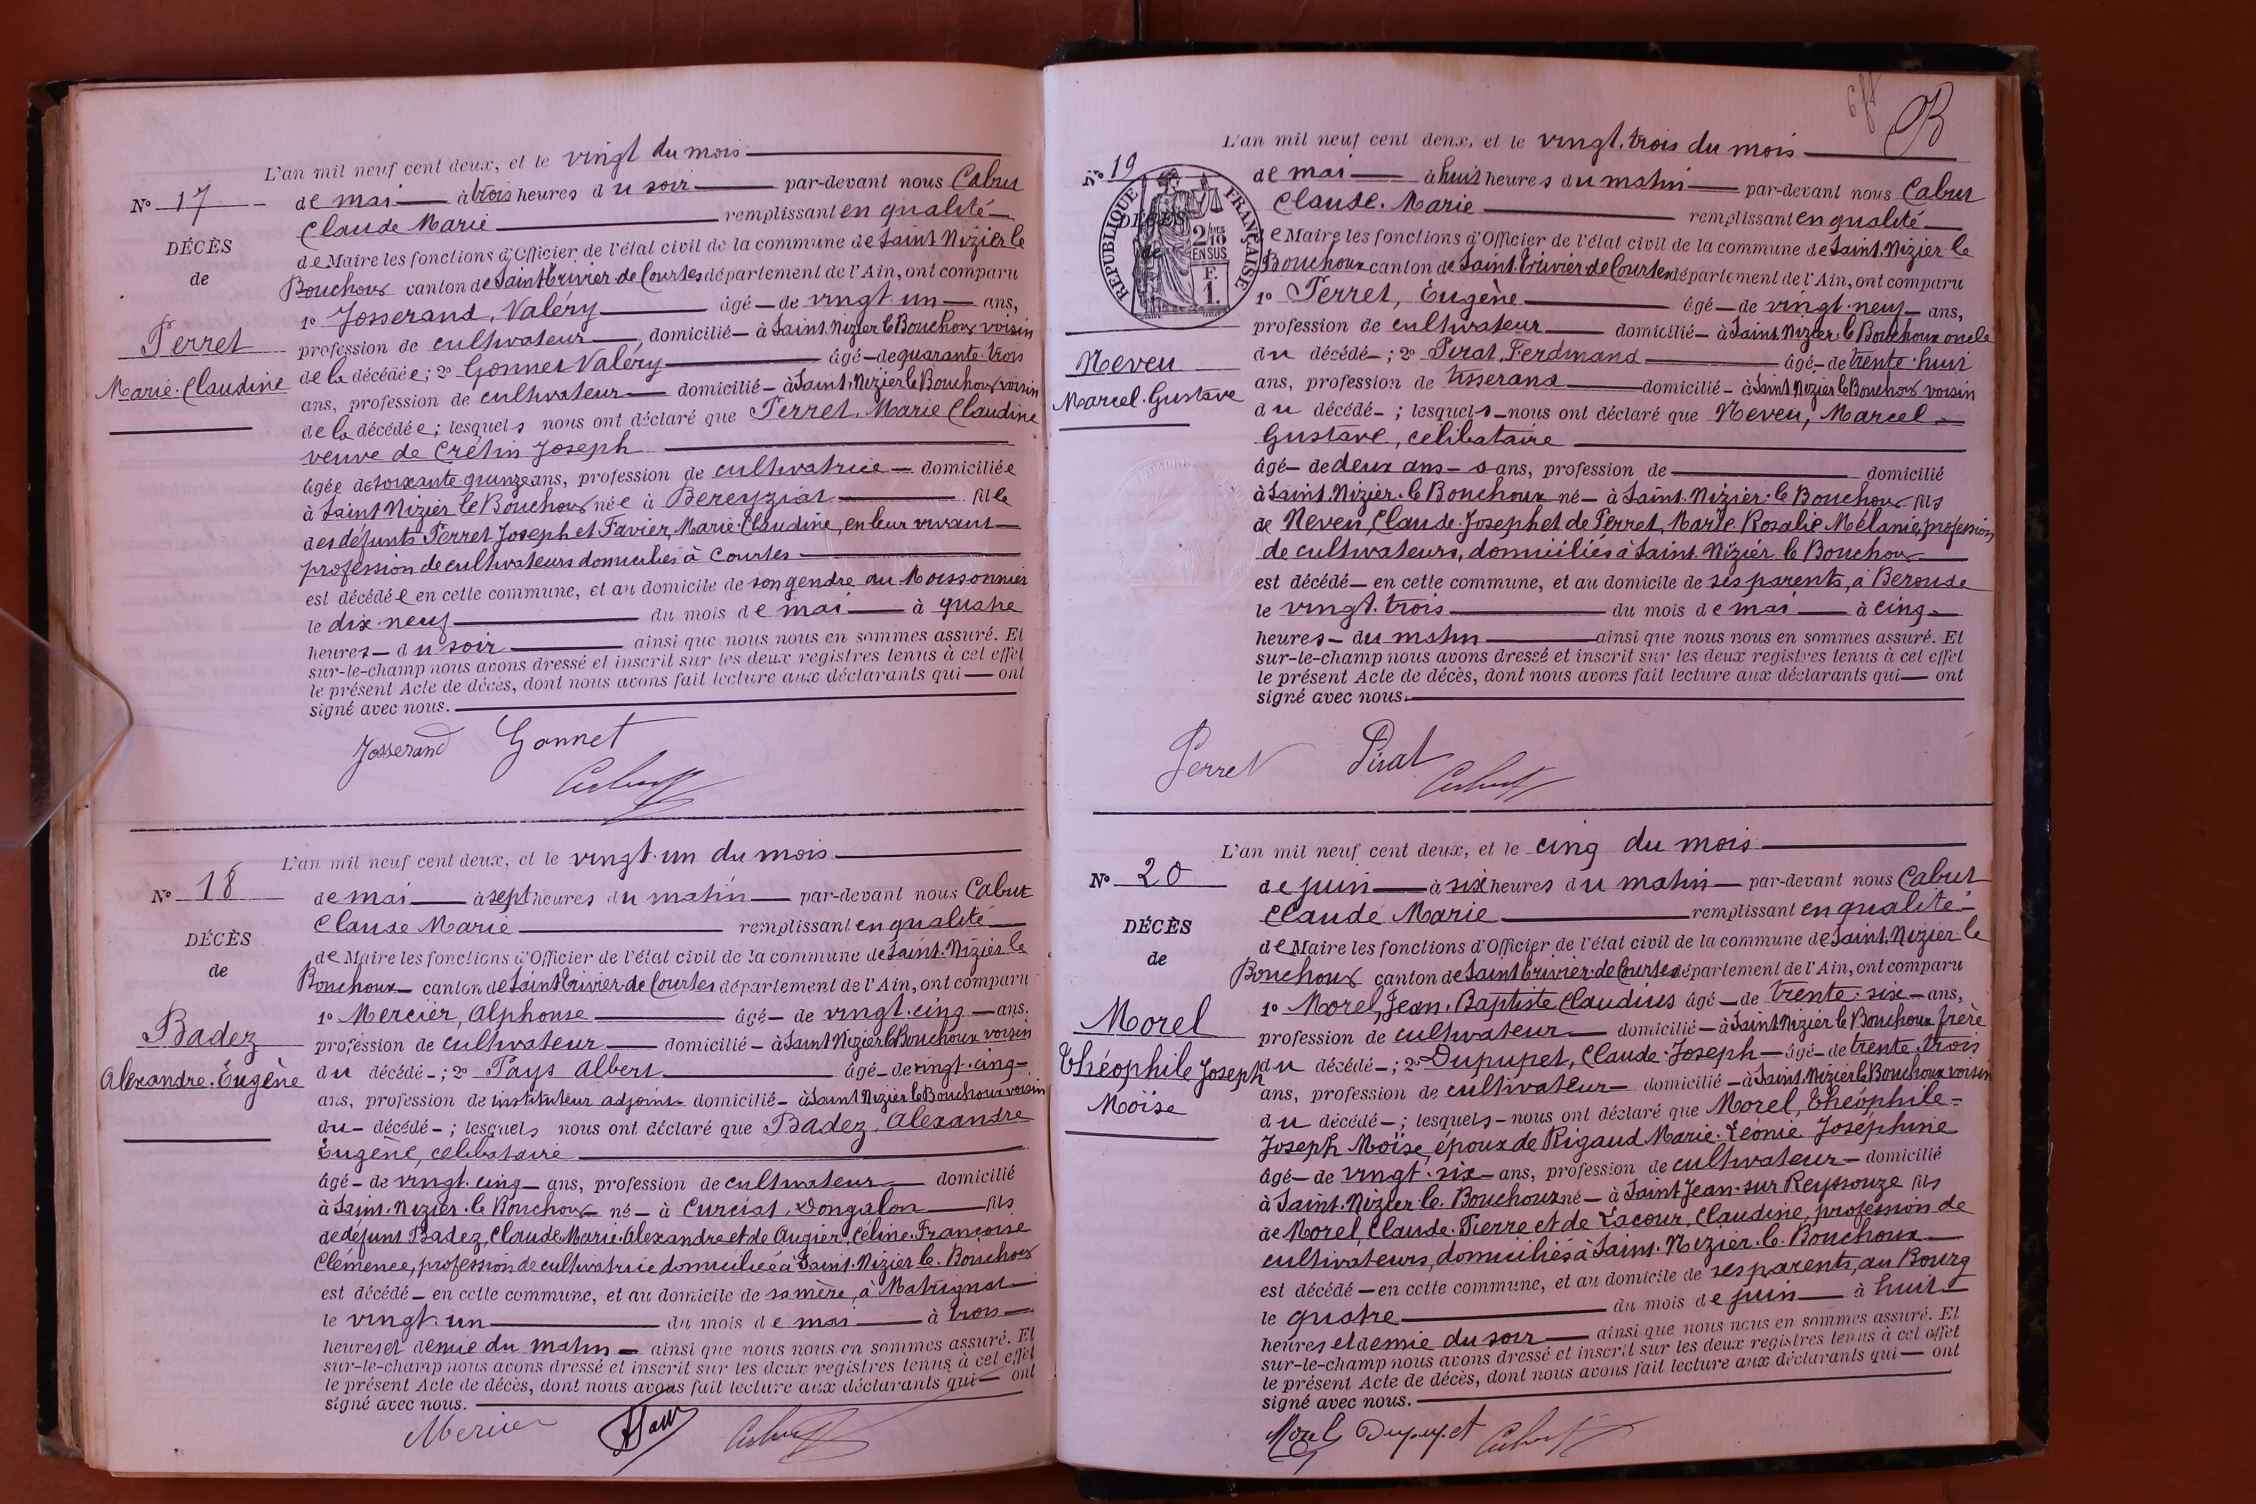 L'an mil neuf cent deux, et le vingt du mois
N° 17
de mai à trois heures du soir par-devant nous Cabut
Claude Marie remplissant en qualité
DÉCÈS
de Maire les fonctions d'Officier de l'état civil de la commune de Saint Nizier le
de
Bouchoux canton de Saint Trivier de Courtes département de l'Ain, ont comparu
1° Josserand, Valéry âgé de vingt un ans,
Perret
profession de cultivateur, domicilié à Saint Nizier le Bouchoux voisin
de la décédée; 2° Gonnet Valéry âgé de quarante trois
Marie Claudine
ans, profession de cultivateur domicilié à Saint Nizier le Bouchoux voisin
de la décédée; lesquels nous ont déclaré que Perret, Marie Claudine
veuve de Crétin Joseph
âgée de soixante quinze ans, profession de cultivatrice domiciliée
à Saint Nizier le Bouchoux née à Bereyziat fille
des défunts Perret Joseph et Favier, Marie Claudine, en leur vivant
profession de cultivateurs domiciliés à Courtes
est décédée en cette commune, et au domicile de son gendre au Moissonnier
le dix-neuf du mois de mai à quatre
heures du soir ainsi que nous nous en sommes assuré. Et
sur-le-champ nous avons dressé et inscrit sur les deux registres tenus à cet effet
le présent Acte de décès, dont nous avons fait lecture aux déclarants qui ont
signé avec nous.
Josserand Gonnet
Cabut
L'an mil neuf cent deux, et le vingt-un du mois
N° 18
de mai à sept heures du matin par-devant nous Cabut
Claude Marie remplissant en qualité
DÉCÈS
de Maire les fonctions d'Officier de l'état civil de la commune de Saint-Nizier le
de
Bouchoux canton de Saint Trivier-de Courtes département de l'Ain, ont comparu
1° Mercier, Alphonse âgé de vingt-cinq ans,
Badez
profession de cultivateur domicilié à Saint Nizier le Bouchoux voisin
Alexandre. Eugène
du décédé; 2° Pays Albert âgé de vingt-cinq
ans, profession de instituteur adjoint domicilié à Saint Nizier le Bouchoux voisin
du décédé; lesquels nous ont déclaré que Badez, Alexandre
Eugène, célibataire
âgé de vingt-cinq ans, profession de cultivateur domicilié
à Saint-Nizier-le Bouchoux né à Curciat-Dongalon fils
de défunt Badez, Claude Marie Alexandre et de Augier, Céline Françoise
Clémence, profession de cultivatrice domiciliée à Saint-Nizier le Bouchoux
est décédé en cette commune, et au domicile de sa mère, à Matrignat
le vingt-un du mois de mai à trois
heures et demie du matin ainsi que nous nous en sommes assuré. Et
sur-le-champ nous avons dressé et inscrit sur les deux registres tenus à cet effet
le présent Acte de décès, dont nous avons fait lecture aux déclarants qui ont
signé avec nous.
Mercier Cabut
L'an mil neuf cent deux, et le vingt-trois du mois
N° 19
de mai à huit heures du matin par-devant nous Cabut
Claude. Marie remplissant en qualité
DÉCÈS
de
RÉPUBLIQUE FRANÇAISE
2/10 EN SUS
F. 1.
de Maire les fonctions d'Officier de l'état civil de la commune de Saint-Nizier le
Bouchoux canton de Saint-Trivier-de Courtes département de l'Ain, ont comparu
1° Perret, Eugène âgé de vingt-neuf ans,
profession de cultivateur domicilié à Saint Nizier-le Bouchoux oncle
Neveu
du décédé; 2° Pirat, Ferdinand âgé de trente-huit
Marcel. Gustave
ans, profession de tisserand domicilié à Saint Nizier le Bouchoux voisin
du décédé; lesquels nous ont déclaré que Neveu, Marcel
Gustave, célibataire
âgé de deux ans ans, profession de domicilié
à Saint-Nizier-le Bouchoux né à Saint-Nizier-le Bouchoux fils
de Neveu, Claude-Joseph et de Perret, Marie Rosalie Mélanie, profession
de cultivateurs, domiciliés à Saint-Nizier le Bouchoux
est décédé en cette commune, et au domicile de ses parents, à Beroude
le vingt-trois du mois de mai à cinq
heures du matin ainsi que nous nous en sommes assuré. Et
sur-le-champ nous avons dressé et inscrit sur les deux registres tenus à cet effet
le présent Acte de décès, dont nous avons fait lecture aux déclarants qui ont
signé avec nous.
Perret Pirat
Cabut
L'an mil neuf cent deux, et le cinq du mois
N° 20
de juin à six heures du matin par-devant nous Cabut
Claude Marie remplissant en qualité
DÉCÈS
de Maire les fonctions d'Officier de l'état civil de la commune de Saint-Nizier-le
de
Bouchoux canton de Saint Trivier-de Courtes département de l'Ain, ont comparu
1° Morel, Jean-Baptiste Claudius âgé de trente-six ans,
Morel
profession de cultivateur domicilié à Saint Nizier le Bouchoux frère
Théophile Joseph
du décédé; 2° Dupupet, Claude-Joseph âgé de trente-trois
ans, profession de cultivateur domicilié à Saint-Nizier le Bouchoux voisin
Moïse
du décédé; lesquels nous ont déclaré que Morel, Théophile
Joseph Moïse, époux de Rigaud Marie-Léonie Joséphine
âgé de vingt-six ans, profession de cultivateur domicilié
à Saint-Nizier-le Bouchoux né à Saint Jean-sur Reyssouze fils
de Morel, Claude-Pierre et de Lacour, Claudine, profession de
cultivateurs, domiciliés à Saint-Nizier-le-Bouchoux
est décédé en cette commune, et au domicile de ses parents, au Bourg
le quatre du mois de juin à huit
heures et demie du soir ainsi que nous nous en sommes assuré. Et
sur-le-champ nous avons dressé et inscrit sur les deux registres tenus à cet effet
le présent Acte de décès, dont nous avons fait lecture aux déclarants qui ont
signé avec nous.
Morel Dupupet Cabut